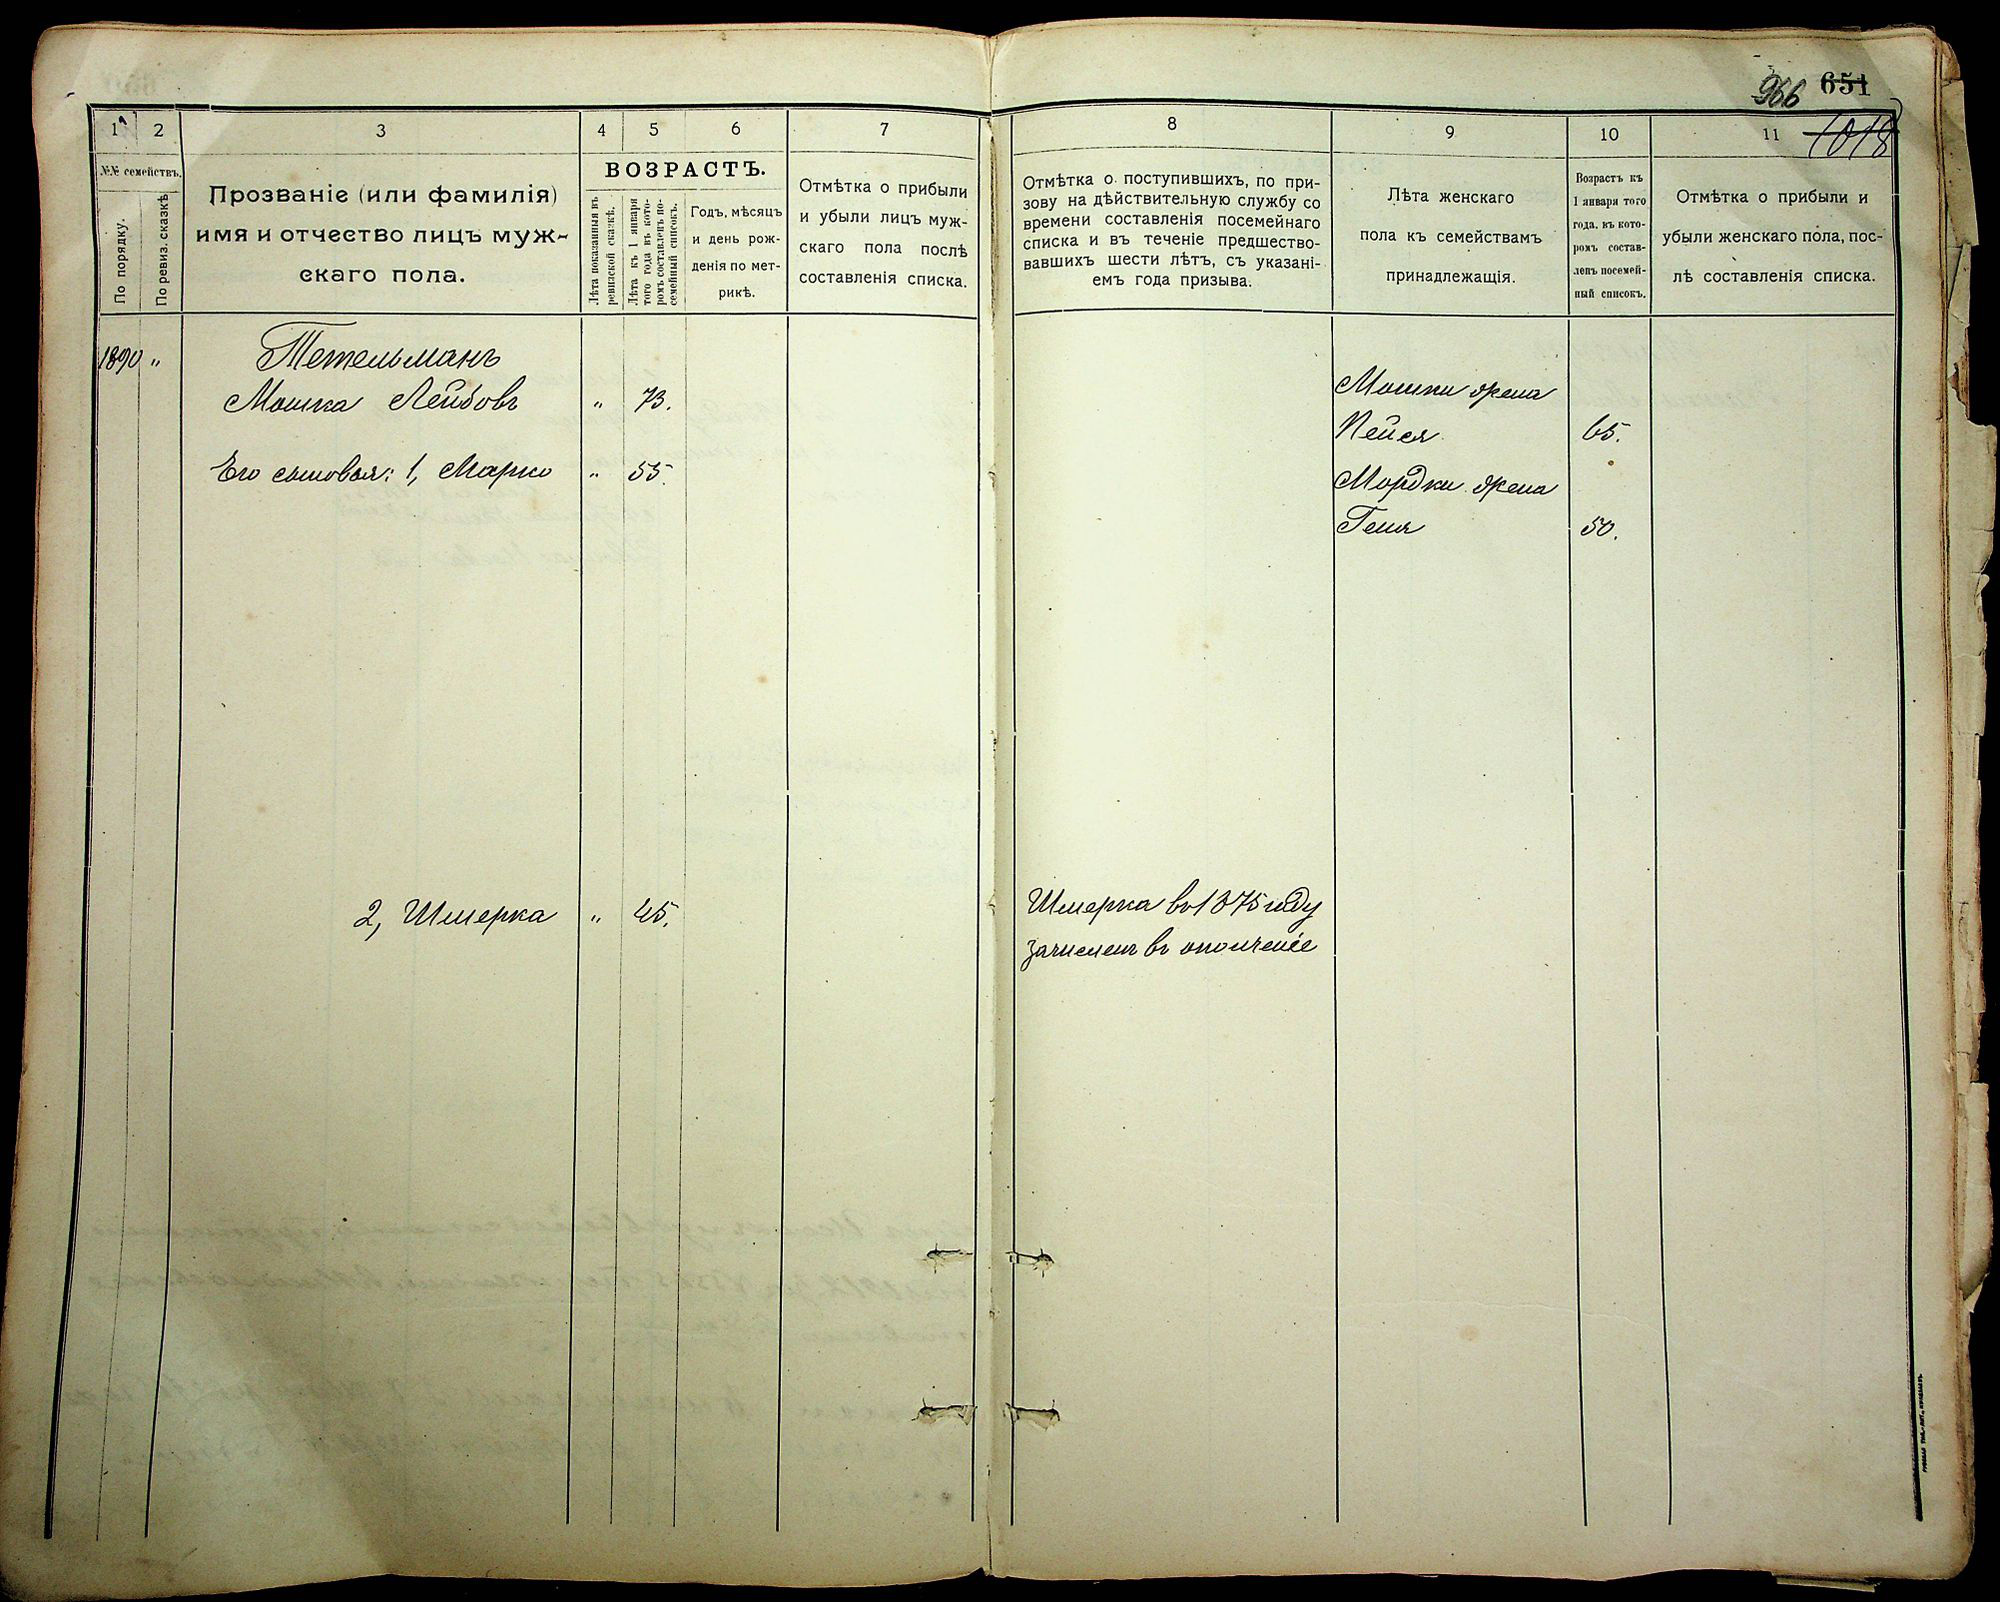 966 651
1018
1
2
3
4
5
6
7
8
9
10
11
№№ семействъ.
По порядку.
По ревиз. сказкѣ
Прозваніе (или фамилія)
имя и отчество лицъ муж-
скаго пола.
ВОЗРАСТЪ.
Лѣта показанныя въ
ревизской сказкѣ.
Лѣта къ 1 января
того года въ кото-
ромъ составленъ по-
семейный списокъ.
Годъ, мѣсяцъ
и день рож-
денія по мет-
рикѣ.
Отмѣтка о прибыли
и убыли лицъ муж-
скаго пола послѣ
составленія списка.
Отмѣтка о поступившихъ, по при-
зову на дѣйствительную службу со
времени составленія посемейнаго
списка и въ теченіе предшество-
вавшихъ шести лѣтъ, съ указані-
емъ года призыва.
Лѣта женскаго
пола къ семействамъ
принадлежащія.
Возрастъ къ
1 января того
года, въ кото-
ромъ состав-
ленъ посемей-
ный списокъ.
Отмѣтка о прибыли и
убыли женскаго пола, пос-
лѣ составленія списка.
1890 "
Тетельманъ
Мошка Лейбовъ " 73.
Его сыновья: 1, Марко " 55.
2, Шмерка " 45.
Шмерка въ 1875 году
зачисленъ въ ополченіе
Мошки жена
Пейся 65.
Мордки жена
Геня 50.